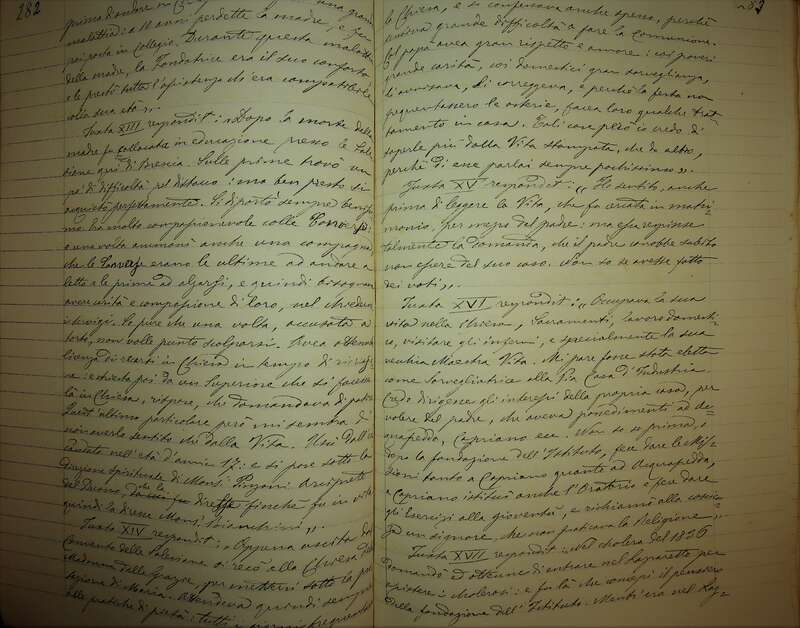 182
malattia: a 11 anni perdette la madre, e fu
poi posta in Collegio. Durante questa malattia
della madre, la Fondatrice era il suo conforto
e le prestò tutta l'assistenza ch'era compatibile
colla sua età ".
Juxta XIII respondit: " Dopo la morte della
madre fu collocata in educazione presso le Sale-
siane di Brescia. Sulle prime trovò un
po' di difficoltà pel distacco: ma ben presto si
acquietò perfettamente. Si diportò sempre benis-
simo ha molto compassionevole colle Converse,
e una volta ammonì anche una compagna
che le Converse erano le ultime ad andare a
letto e le prime ad alzarsi, e quindi bisognava
avere carità e compassione di loro, nel chiedere
i servigi. So pure che una volta, accusata a
torto, non volle punto scolparsi.
licenza di recarsi in Chiesa in tempo di ricrea-
e richiesta poi da un Superiore che si facesse
là in Chiesa, rispose, che domandava di patire
Quest'ultimo particolare però mi sembra di
non averlo sentito che dalla Vita. Uscì dall'e-
ducandato nell'età d'anni 17: e si pose sotto la
direzione spirituale di Mons. Pinzoni Arciprete
del Duomo, che la diresse finchè fu in vita
quindi la diresse Mons. Bianchini ".
Juxta XIV respondit: " Appena uscita dal
Convento delle Salesiane si recò alla Chiesa della
Madonna delle Grazie, per mettersi sotto la pro-
tezione di Maria. Attendeva quindi sempre
alle pratiche di pietà: tutti i giorni frequentava
la Chiesa, e si confessava anche spesso, perchè
aveva grande difficoltà a fare la Comunione.
Pel papà avea gran rispetto e amore: coi poveri
grande carità, coi domestici gran sorveglianza,
li avvisava, li correggeva, e perchè la festa non
frequentassero le osterie, facea loro qualche trat-
tamento in casa. Tali cose però io credo di
saperle più dalla Vita stampata, che da altro,
perchè di esse parlai sempre pochissimo ".
Juxta XV respondit: " Ho sentito, anche
prima di leggere la Vita, che fu cercata in matri-
monio, per mezzo del padre: ma essa respinse
talmente la domanda, che il padre conobbe subito
non essere del suo caso. Non so se avesse fatto
dei voti ".
Juxta XVI respondit: " Occupava la sua
vita nella Chiesa, Sacramenti, lavoro domesti-
co, visitare gli infermi, e specialmente la sua
vecchia Maestra Vita. Mi pare fosse stata eletta
come Sorvegliatrice alla Pia Casa d'Industria.
Credo dirigesse gli interessi della propria casa, per
volere del padre, che aveva possedimenti ad Ac-
quafredda, Capriano ecc. Non so se prima, o
dopo la fondazione dell'Istituto, fece dare le Mis-
sioni tanto a Capriano quanto ad Acquafredda,
a Capriano istituì anche l'Oratorio e fece dare
gli Esercizi alla gioventù, e richiamò alla coscien-
za un signore, che non praticava la Religione ".
Juxta XVII respondit: " Nel cholera del 1836
domandò ed ottenne di entrare nel Lazzaretto per
assistere i cholerosi: e fu là che concepì il pensiero
della fondazione dell'Istituto. Mentr'era nel Laz-